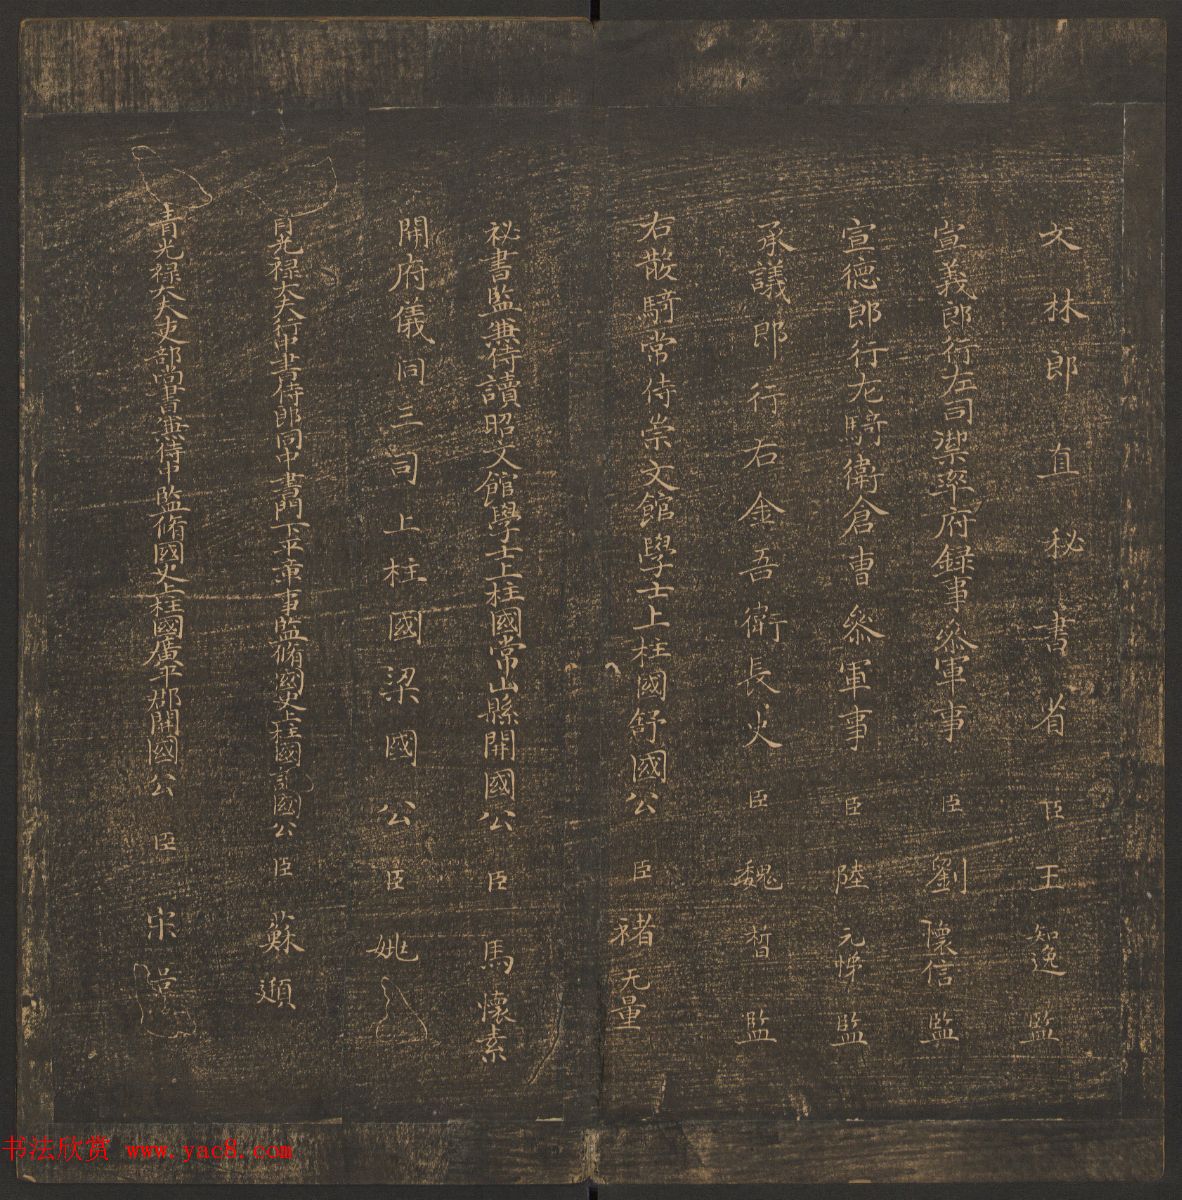 文林郎直秘書省臣王知逸監
宣義郎行左司禦率府録事叅軍事臣劉懷信監
宣德郎行左驍衛倉曹叅軍事臣陸元悌監
承議郎行右金吾衛長史臣魏晢監
右散騎常侍崇文館學士上柱國舒國公臣褚无量
祕書監兼侍讀昭文館學士上柱國常山縣開國公臣馬懷素
開府儀同三司上柱國梁國公臣姚
光禄大夫行中書侍郎同中書門下平章事監脩國史上柱國許國公臣蘇頲
青光禄大夫吏部尚書兼侍中監脩國史上柱國廣平郡開國公臣宋
书法欣赏 www.yac8.com